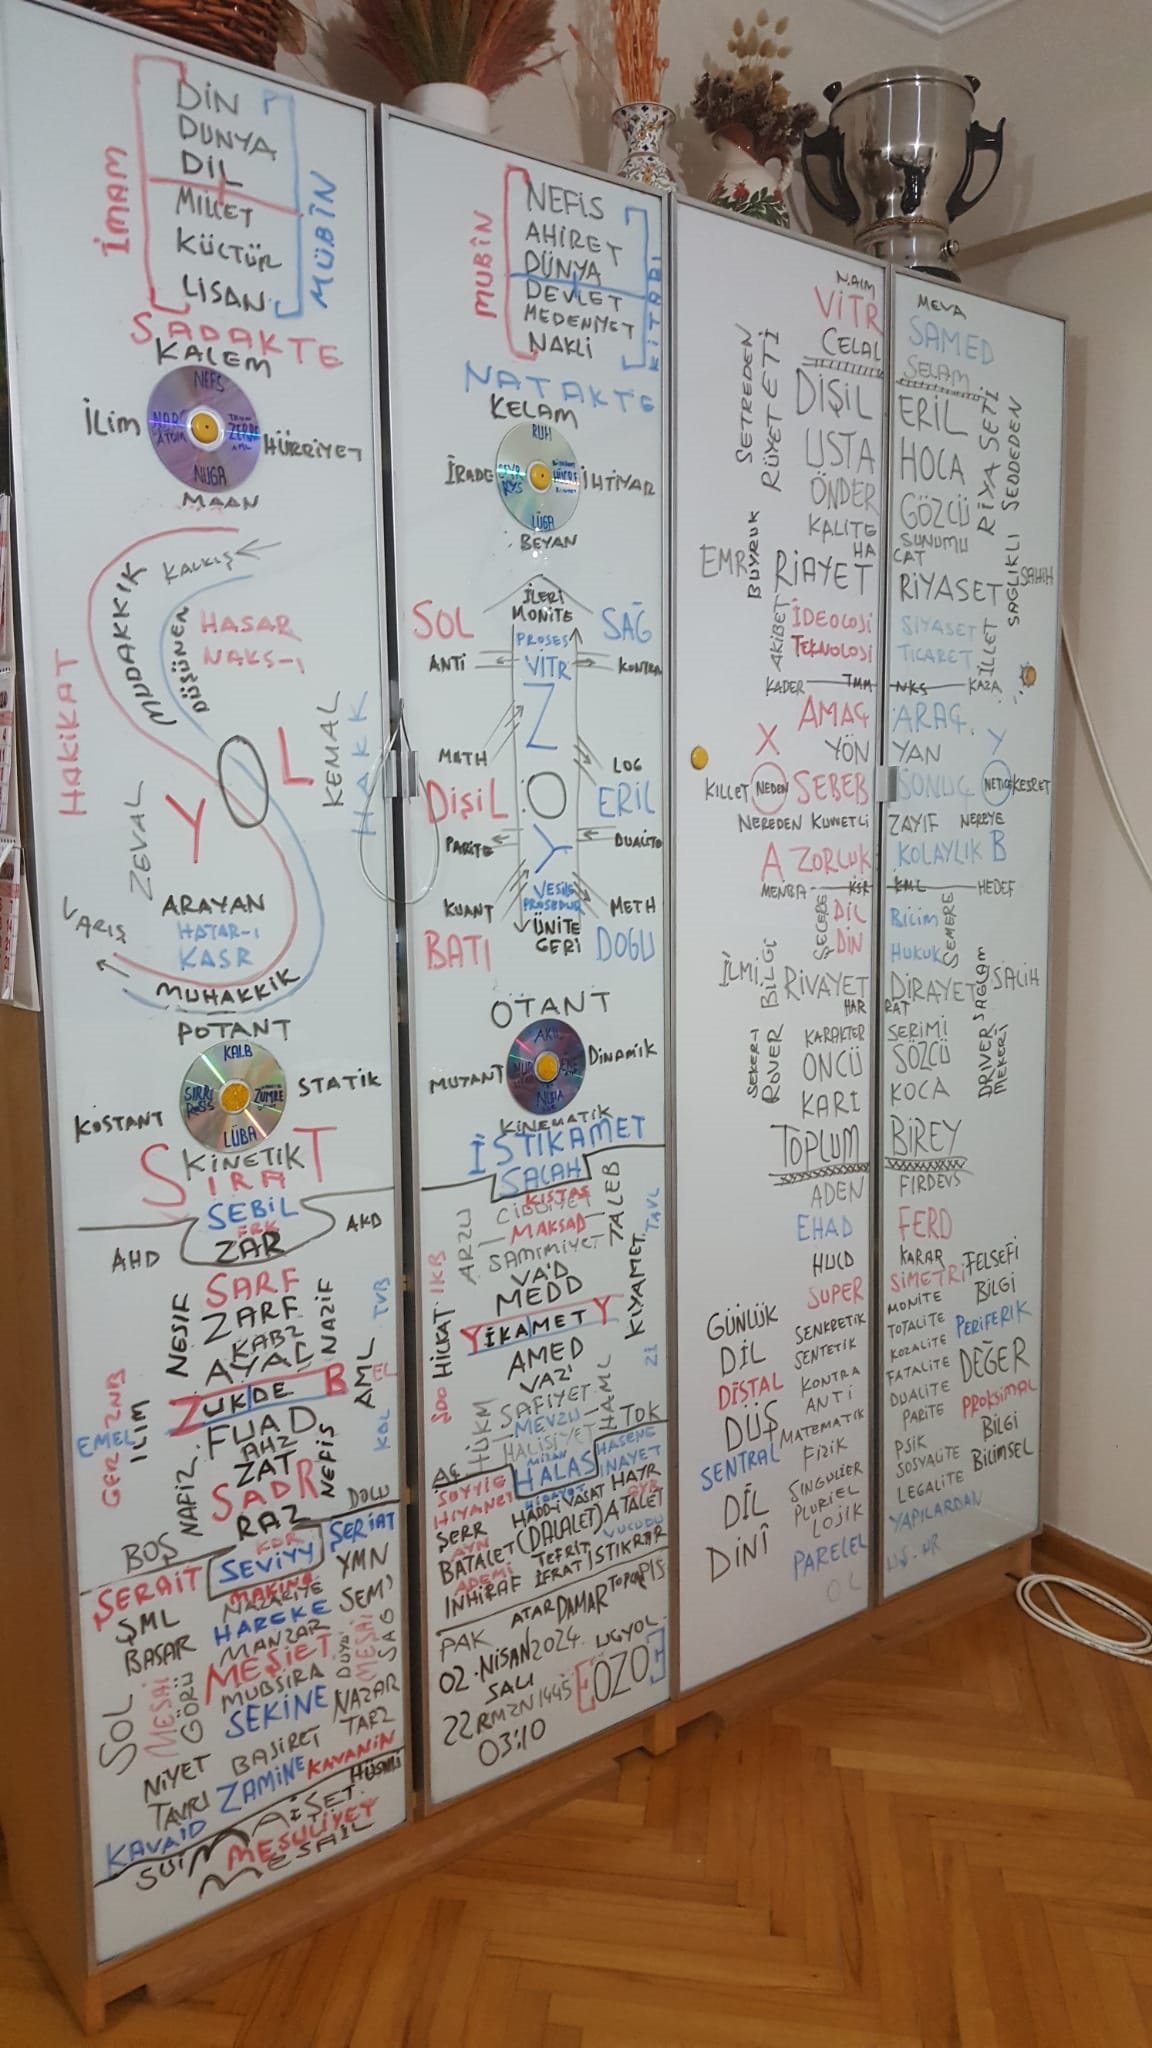 DİN
DUNYA
DİL
MİLLET
KÜLTÜR
LİSAN
İMAM
MÜBİN
SADAKTE
KALEM
NEFS
İLİM
HÜRRİYET
NUGA
MAAN
KALKIŞ
MUDAKKIK
DÜŞÜNEN
HASAR
NAKS-I
HAKİKAT
KEMAL
HAKK
L
Y
ZEVAL
VARIŞ
ARAYAN
HATAR-I
KASR
MUHAKKİK
POTANT
KALB
STATİK
KOSTANT
SIRR
ZÜMRE
LÜBA
KİNETİK
SIRAT
SEBİL
FRK
ZAR
AHD
AKD
SARF
ZARF
KABZ
AYAC
NESİF
NAZİF
TVB
ZUKDE B
AML
EL
FUAD
AHZ
ZAT
SADR
RAZ
EMEL
İLİM
GERZNB
NAFİZ
NEFİS
KOL
BOŞ
DOLU
ŞERAİT
KDR
SEVİYY
ŞERİAT
MAKİNA
NAZARİYE
YMN
ŞML
HAREKE
SEM'
BASAR
MANZAR
MEŞİET
MUBSIRA
SOL
MESAİ
GÖRÜ
DUYU
MESAİ
SAĞ
SEKİNE
NAZAR
TARZ
NİYET
BASİRET
TAVRI
ZAMİNE
KAVANİN
KAVAİD
HÜSNİ
SUİ
MAİŞET
MESULİYET
MESAİL
NEFİS
AHİRET
DÜNYA
DEVLET
MEDENİYET
NAKLİ
MUBİN
KİTABI
NATAKTE
KELAM
RUH
İRADE
İHTİYAR
LÜGA
BEYAN
İLERİ
MONİTE
SOL
SAĞ
PROSES
ANTİ
VİTR
KONTRA
Z
MATH
LOG
DİŞİL
O
ERİL
PARİTE
DUALİTE
Y
KUANT
VESİLE
PROSEDUR
METH
ÜNİTE
GERİ
BATI
DOĞU
OTANT
AKIL
MUTANT
DİNAMİK
NUHA
KİNEMATİK
İSTİKAMET
SALAH
KISTAS
CİDDİYET
MAKSAD
SAMİMİYET
ARZU
TALEB
TAVL
VA'D
MEDD
YİKAMET Y
AMED
VAZ'
HİLKAT
KIYAMET
SAFİYET
MEVZU
HALİSİYET
HÜKM
HAML
AÇ
TOK
MİZAN
HALAS
HASENE
İNAYET
SEYYİE
HIYANET
HİDAYET
HAYR
ŞERR
HADD-İ VASAT
AYN
BATALET (DALALET) ATALET
ADEMİ
VUCUDU
İNHİRAF
TEFRİT
İFRAT
İSTİKRAR
ATAR DAMAR
TOPLAR
PİS
PAK
02 NİSAN 2024
SALI
UGYOL
22 RMZN 1445
[EOZOE]
03:10
NAIM
VİTR
CELAL
SETREDEN
RÜYETETİ
DİŞİL
USTA
ÖNDER
KALİTE
HA
EMR
BUYRUK
RİAYET
AKİBET
İDEOLOJİ
TEKNOLOJİ
KADER
TMM
AMAÇ
X
YÖN
KILLET
NEDEN
SEBEB
NEREDEN KUVVETLİ
A ZORLUK
MENBA
KSR
ŞECERE
DİL
DİN
İLMİ
BİLGİ
RİVAYET
HAR
ŞEKER-İ
ROVER
KARAKTER
ÖNCÜ
KARI
TOPLUM
ADEN
EHAD
HULD
SUPER
GÜNLÜK
SENKRETİK
DİL
SENTETİK
DİSTAL
KONTRA
ANTİ
DÜŞ
MATEMATİK
SENTRAL
FİZİK
SINGULIER
DİL
PLURIEL
LOJİK
DİNÎ
PARELEL
MEVA
SAMED
SELAM
ERİL
HOCA
GÖZCÜ
RİYASETİ
SEDDEDEN
SUNUMU
CAT
RİYASET
SAĞLIKLI
SAHİH
SİYASET
TİCARET
İLLET
NKS
KAZA
ARAÇ
Y
YAN
SONUÇ
NETİCE
KESRET
ZAYIF
NEREYE
KOLAYLIK B
KML
HEDEF
BİLİM
SEMERE
HUKUK
DİRAYET
SAĞLAM
SALİH
RAT
SERİMİ
SÖZCÜ
DRIVER
MEKERİ
KOCA
BİREY
FIRDEVS
FERD
KARAR
SİMETRİ
FELSEFİ
BİLGİ
MONİTE
TOTALİTE
PERİFERİK
KOZALİTE
FATALİTE
DEĞER
DUALİTE
PARİTE
PROKSİMAL
PSİK
BİLGİ
SOSYALİTE
BİLİMSEL
LEGALİTE
YAPILARDAN